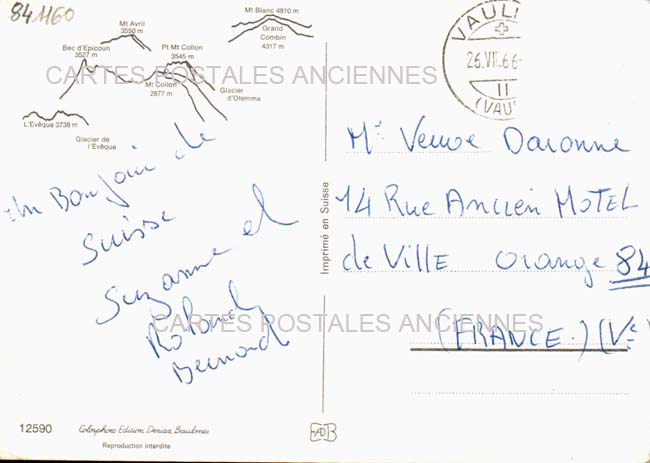 84 1160
Mt Blanc 4810 m
Mt Avril
3550 m
Grand
Combin
4317 m
Bec d'Epicoun
3527 m
Pt Mt Collon
3545 m
Mt Collon
2877 m
Glacier
d'Otemma
L'Evêque 3738 m
Glacier de
l'Evêque
CARTES POSTALES ANCIENNES
VAULI
26.VII.66-
11
(VAU
Un Bonjour de
Suisse
Suzanne et
Roland
Bernard
Imprimé en Suisse
Me Veuve Daronne
14 Rue Ancien MOTEL
de Ville Orange 84
(FRANCE.) (Vse
CARTES POSTALES ANCIENNES
12590
Colorphoto Edition Deriaz Baulmes
Reproduction interdite